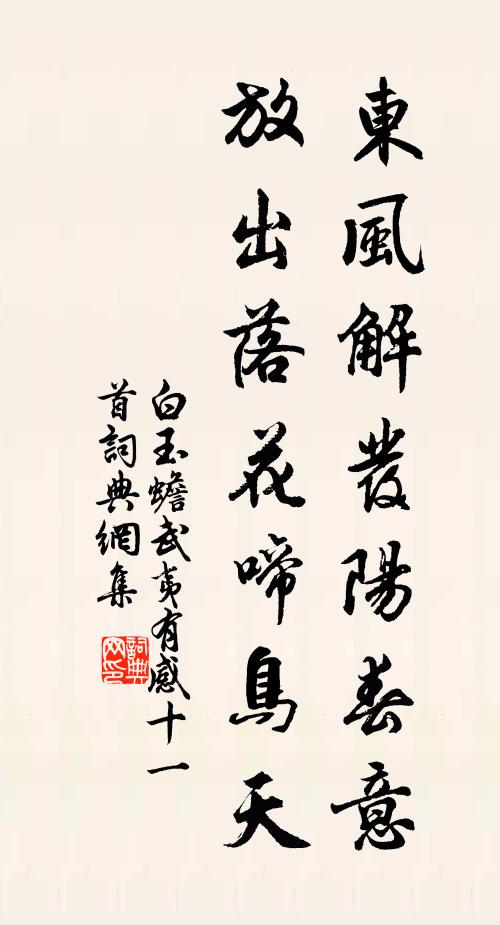 東風解發陽春意
放出落花啼鳥天
白玉蟾武夷有感十一
首詞典網集
詞典网印